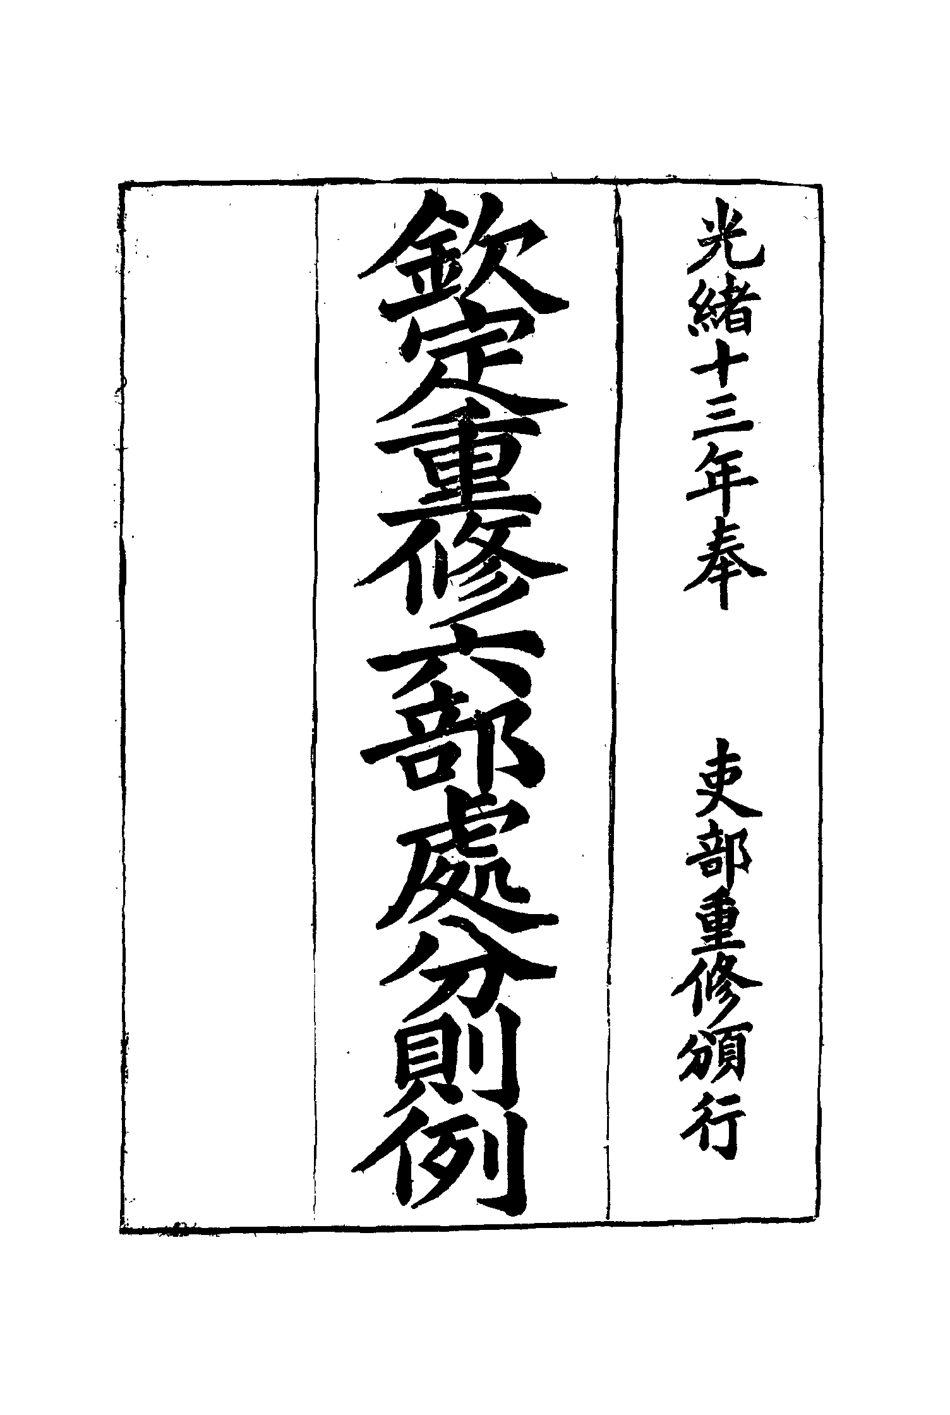 光緒十三年奉　吏部重修頒行
欽定重修六部處分則例